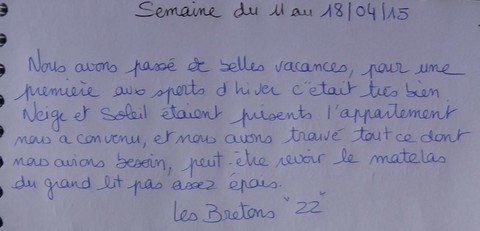 Semaine du 11 au 18/04/15
Nous avons passé de belles vacances, pour une
première aux sports d'hiver c'était très bien
Neige et Soleil étaient présents l'appartement
nous a convenu, et nous avons trouvé tout ce dont
nous avions besoin, peut-être revoir le matelas
du grand lit pas assez épais.
Les Bretons "22"